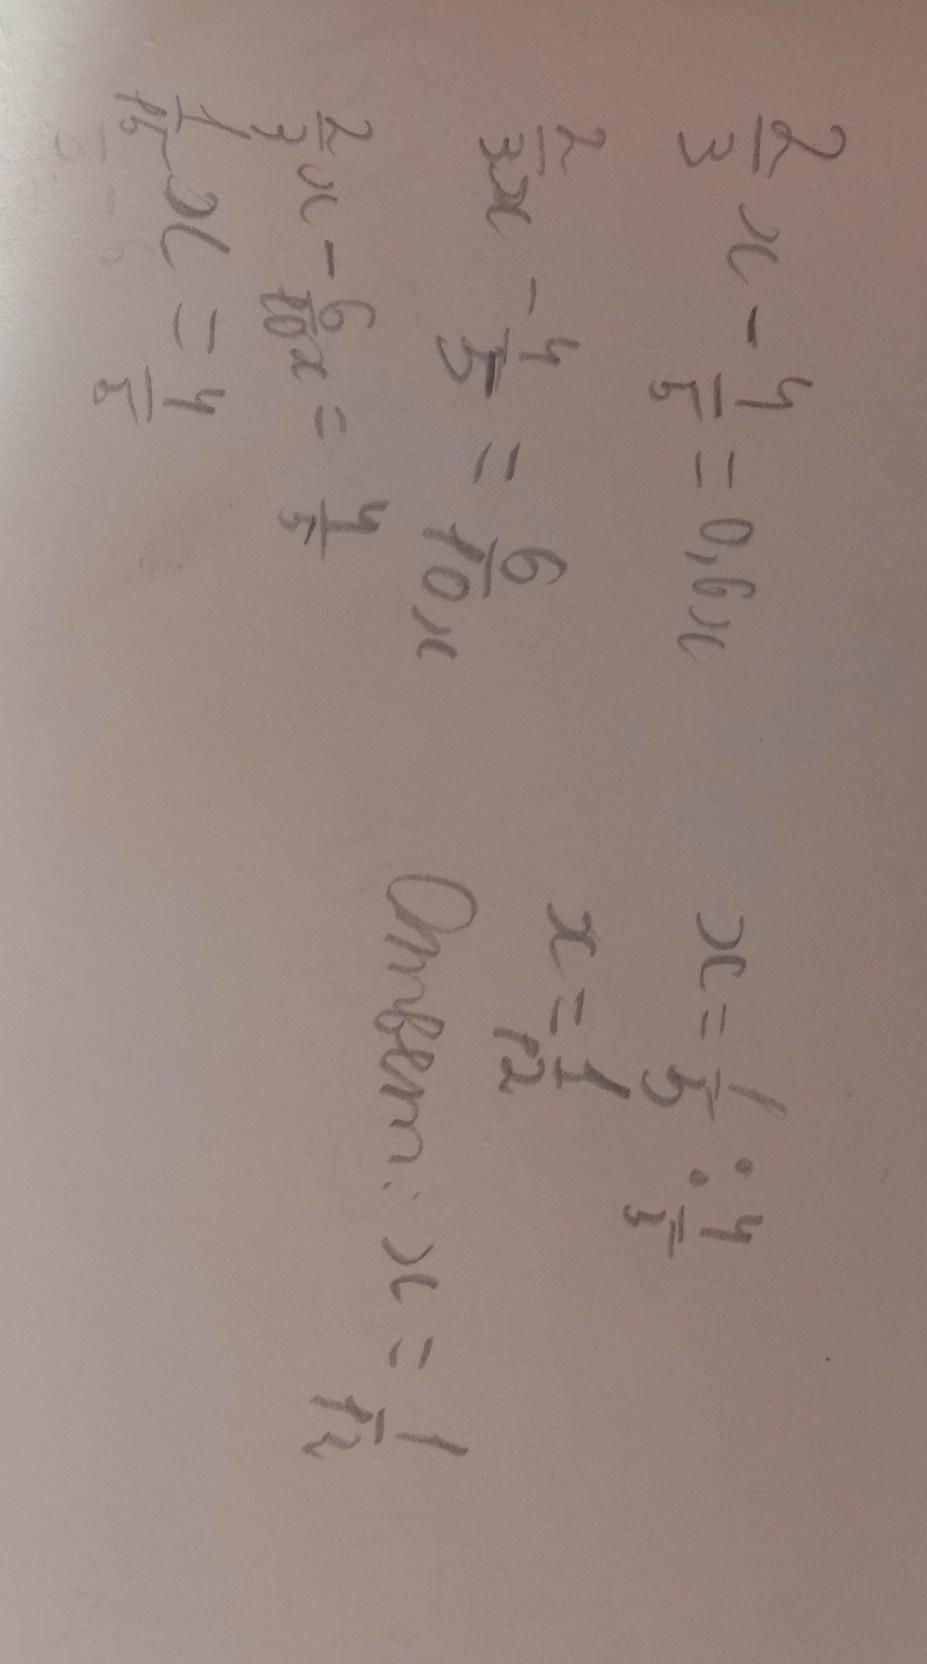 2/3 x - 4/5 = 0,6x
2/3 x - 4/5 = 6/10 x
2/3 x - 6/10 x = 4/5
1/15 x = 4/5
x = 1/5 : 4/5
x = 1/12
Ответ: x = 1/12